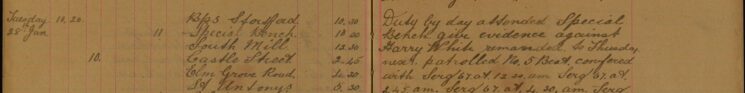 Tuesday 10.20. Bps Stortford 10.30 Duty by day attended Special
28th Jan 11 Special Bench 11.00 Bench give evidence against
South Mill 12.30 Harry White remanded to Thursday
10. Castle Street 2.45 next. patrolled No. 5 Beat, confered
Elm Grove Road 4.30 with Serg 67 at 12.30. am Serg 67. at
St Antonys 5.30 2.45 am. Serg 67. at 4.30. am Serg